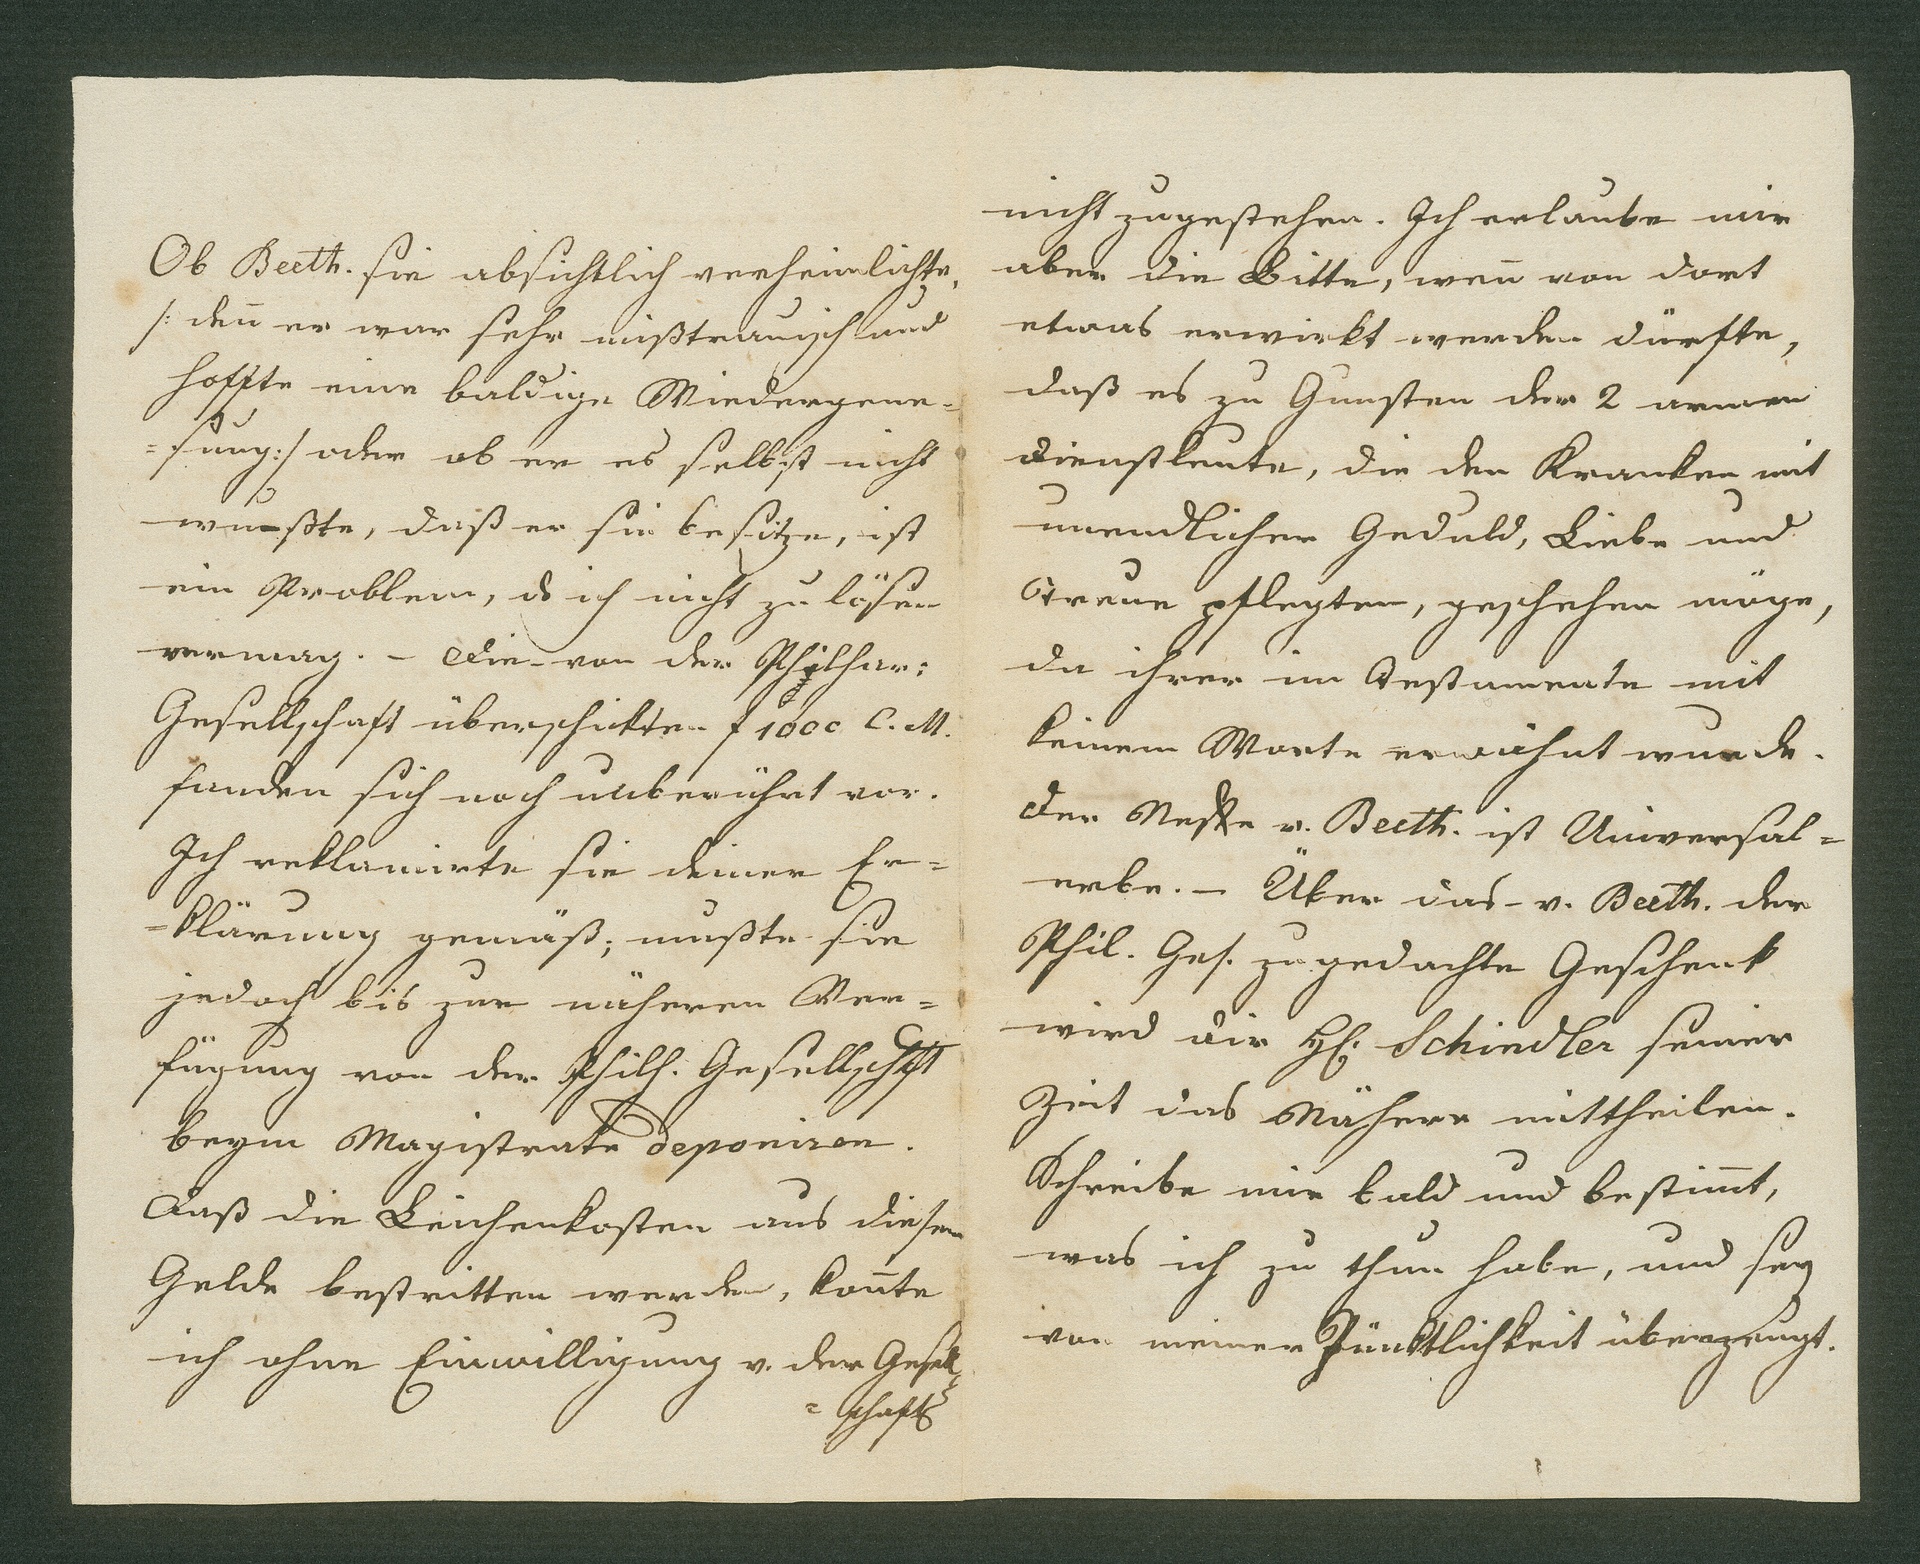 Ob Beeth. sie absichtlich verheimlichte,
/: deñ er war sehr mißtrauisch und
hoffte eine baldige Wiedergene=
=sung:/ oder ob er es selbst nicht
wußte, daß er sie besitze, ist
ein Problem, ds ich nicht zu lösen
vermag. – Die von der Philhar:
Gesellschaft überschickten f 1000 C. M.
fanden sich noch unberührt vor.
Ich reklamirte sie deiner Er=
=klärung gemäß; mußte sie
jedoch bis zur näheren Ver=
fügung von der Philh. Gesellschaft
beym Magistrate deponiren.
Daß die Leichenkosten aus diesem
Gelde bestritten werden, koñte
ich ohne Einwilligung v. der Gesell
=schaft
nicht zugestehen. Ich erlaube mir
aber die Bitte, weñ von dort
etwas erwirkt werden dürfte,
daß es zu Gunsten der 2 armen
Dienstleute, die den Kranken mit
unendlicher Geduld, Liebe und
Treue pflegten, geschehen möge,
da ihrer im Testamente mit
keinem Worte erwähnt wurde.
Der Neffe v. Beeth. ist Universal=
erbe. – Über das v. Beeth. der
Phil. Ges. zugedachte Geschenk
wird dir H: Schindler seiner
Zeit das Nähere mittheilen.
Schreibe mir bald und bestim̄t,
was ich zu thun habe, und sey
von meiner Pünktlichkeit überzeugt.